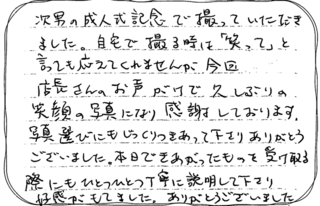 次男の成人式記念で撮っていただき
ました。自宅で撮る時は「笑って」と
言っても応えてくれませんが今回
店長さんのお声がけで久しぶりの
笑顔の写真になり感謝しております。
写真選びにもじっくりつきあって下さりありがとう
ございました。本日できあがったものを受け取る
際にもひとつひとつ丁寧に説明して下さり
好感がもてました。ありがとうございました